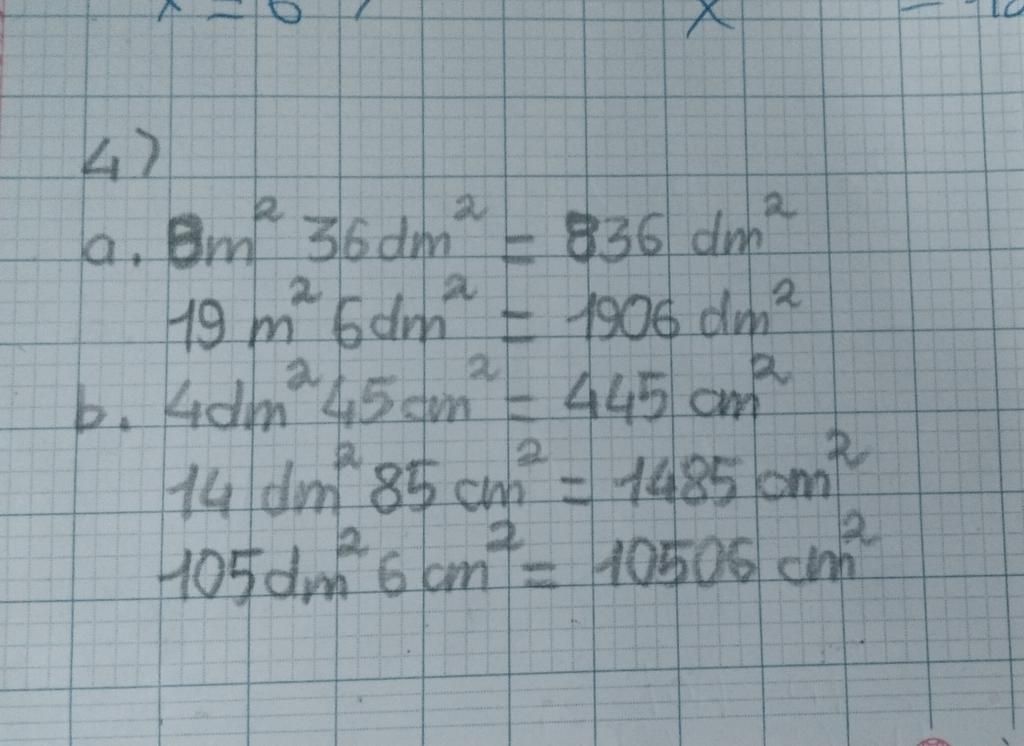 4)
a. 8m² 36dm² = 836 dm²
19 m² 6dm² = 1906 dm²
b. 4dm² 45cm² = 445 cm²
14 dm² 85 cm² = 1485 cm²
105dm² 6 cm² = 10506 cm²